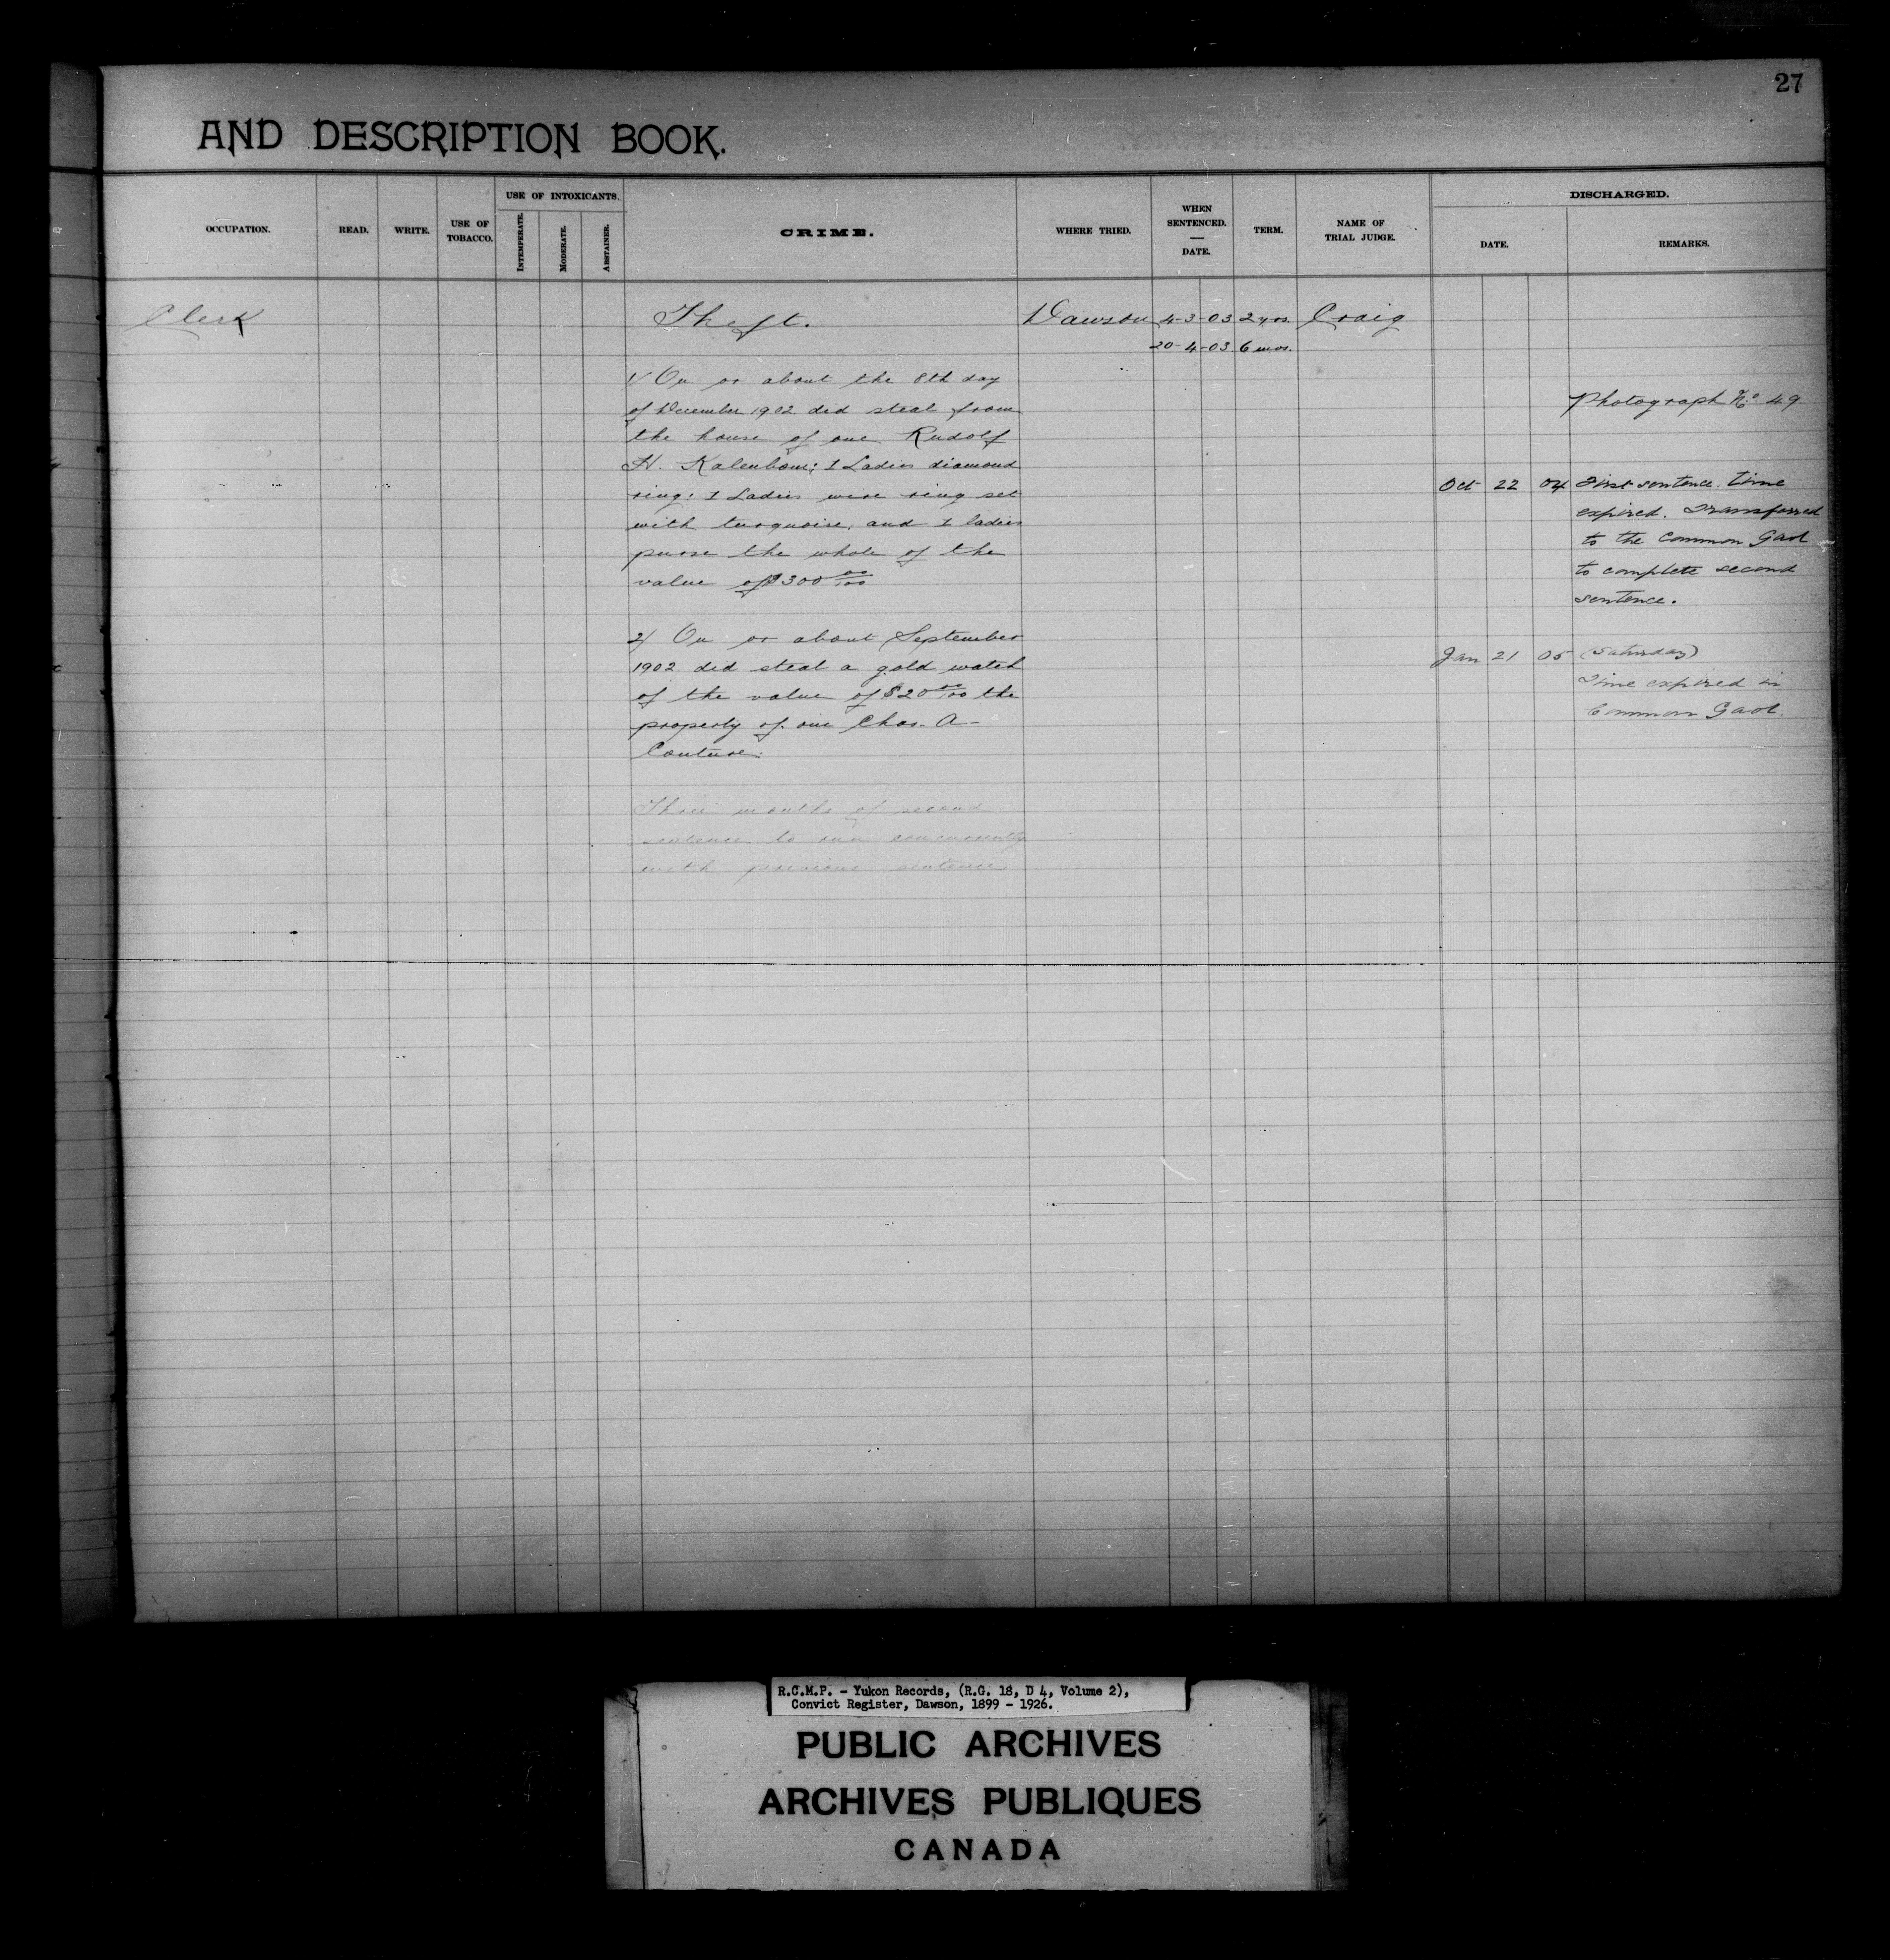 27
AND DESCRIPTION BOOK.
OCCUPATION.
READ.
WRITE.
USE OF TOBACCO.
USE OF INTOXICANTS.
INTEMPERATE.
MODERATE.
ABSTAINER.
CRIME.
WHERE TRIED.
WHEN SENTENCED. — DATE.
TERM.
NAME OF TRIAL JUDGE.
DISCHARGED.
DATE.
REMARKS.
Clerk Theft. Dawson 4-3-03 2 yrs. Craig
20-4-03 6 mos.
1/ On or about the 8th day
of December 1902 did steal from
the house of one Rudolf
H. Kalenborn; 1 Ladies diamond
ring: 1 Ladies wire ring set
with turquoise, and 1 ladies
purse the whole of the
value of $300 00/100
2/ On or about September
1902 did steal a gold watch
of the value of $20 00/100 the
property of one Chas. A-
Couture.
Three months of second
sentence to run concurrently
with previous sentence.
Photograph No. 49
Oct 22 04 First sentence time
expired. Transferred
to the Common Gaol
to complete second
sentence.
Jan 21 05 (Saturday)
Time expired in
Common Gaol.
R.C.M.P. - Yukon Records, (R.G. 18, D 4, Volume 2),
Convict Register, Dawson, 1899 - 1926.
PUBLIC ARCHIVES
ARCHIVES PUBLIQUES
CANADA